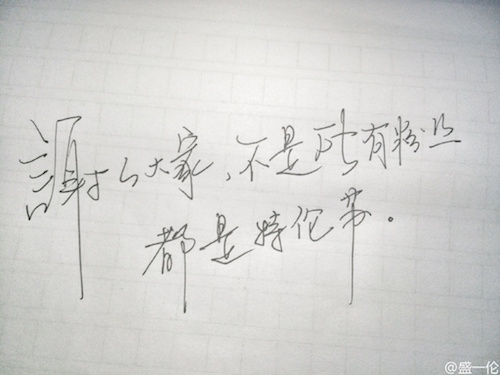 謝了大家,不是所有粉丝
都是特伦苏。
@盛一伦